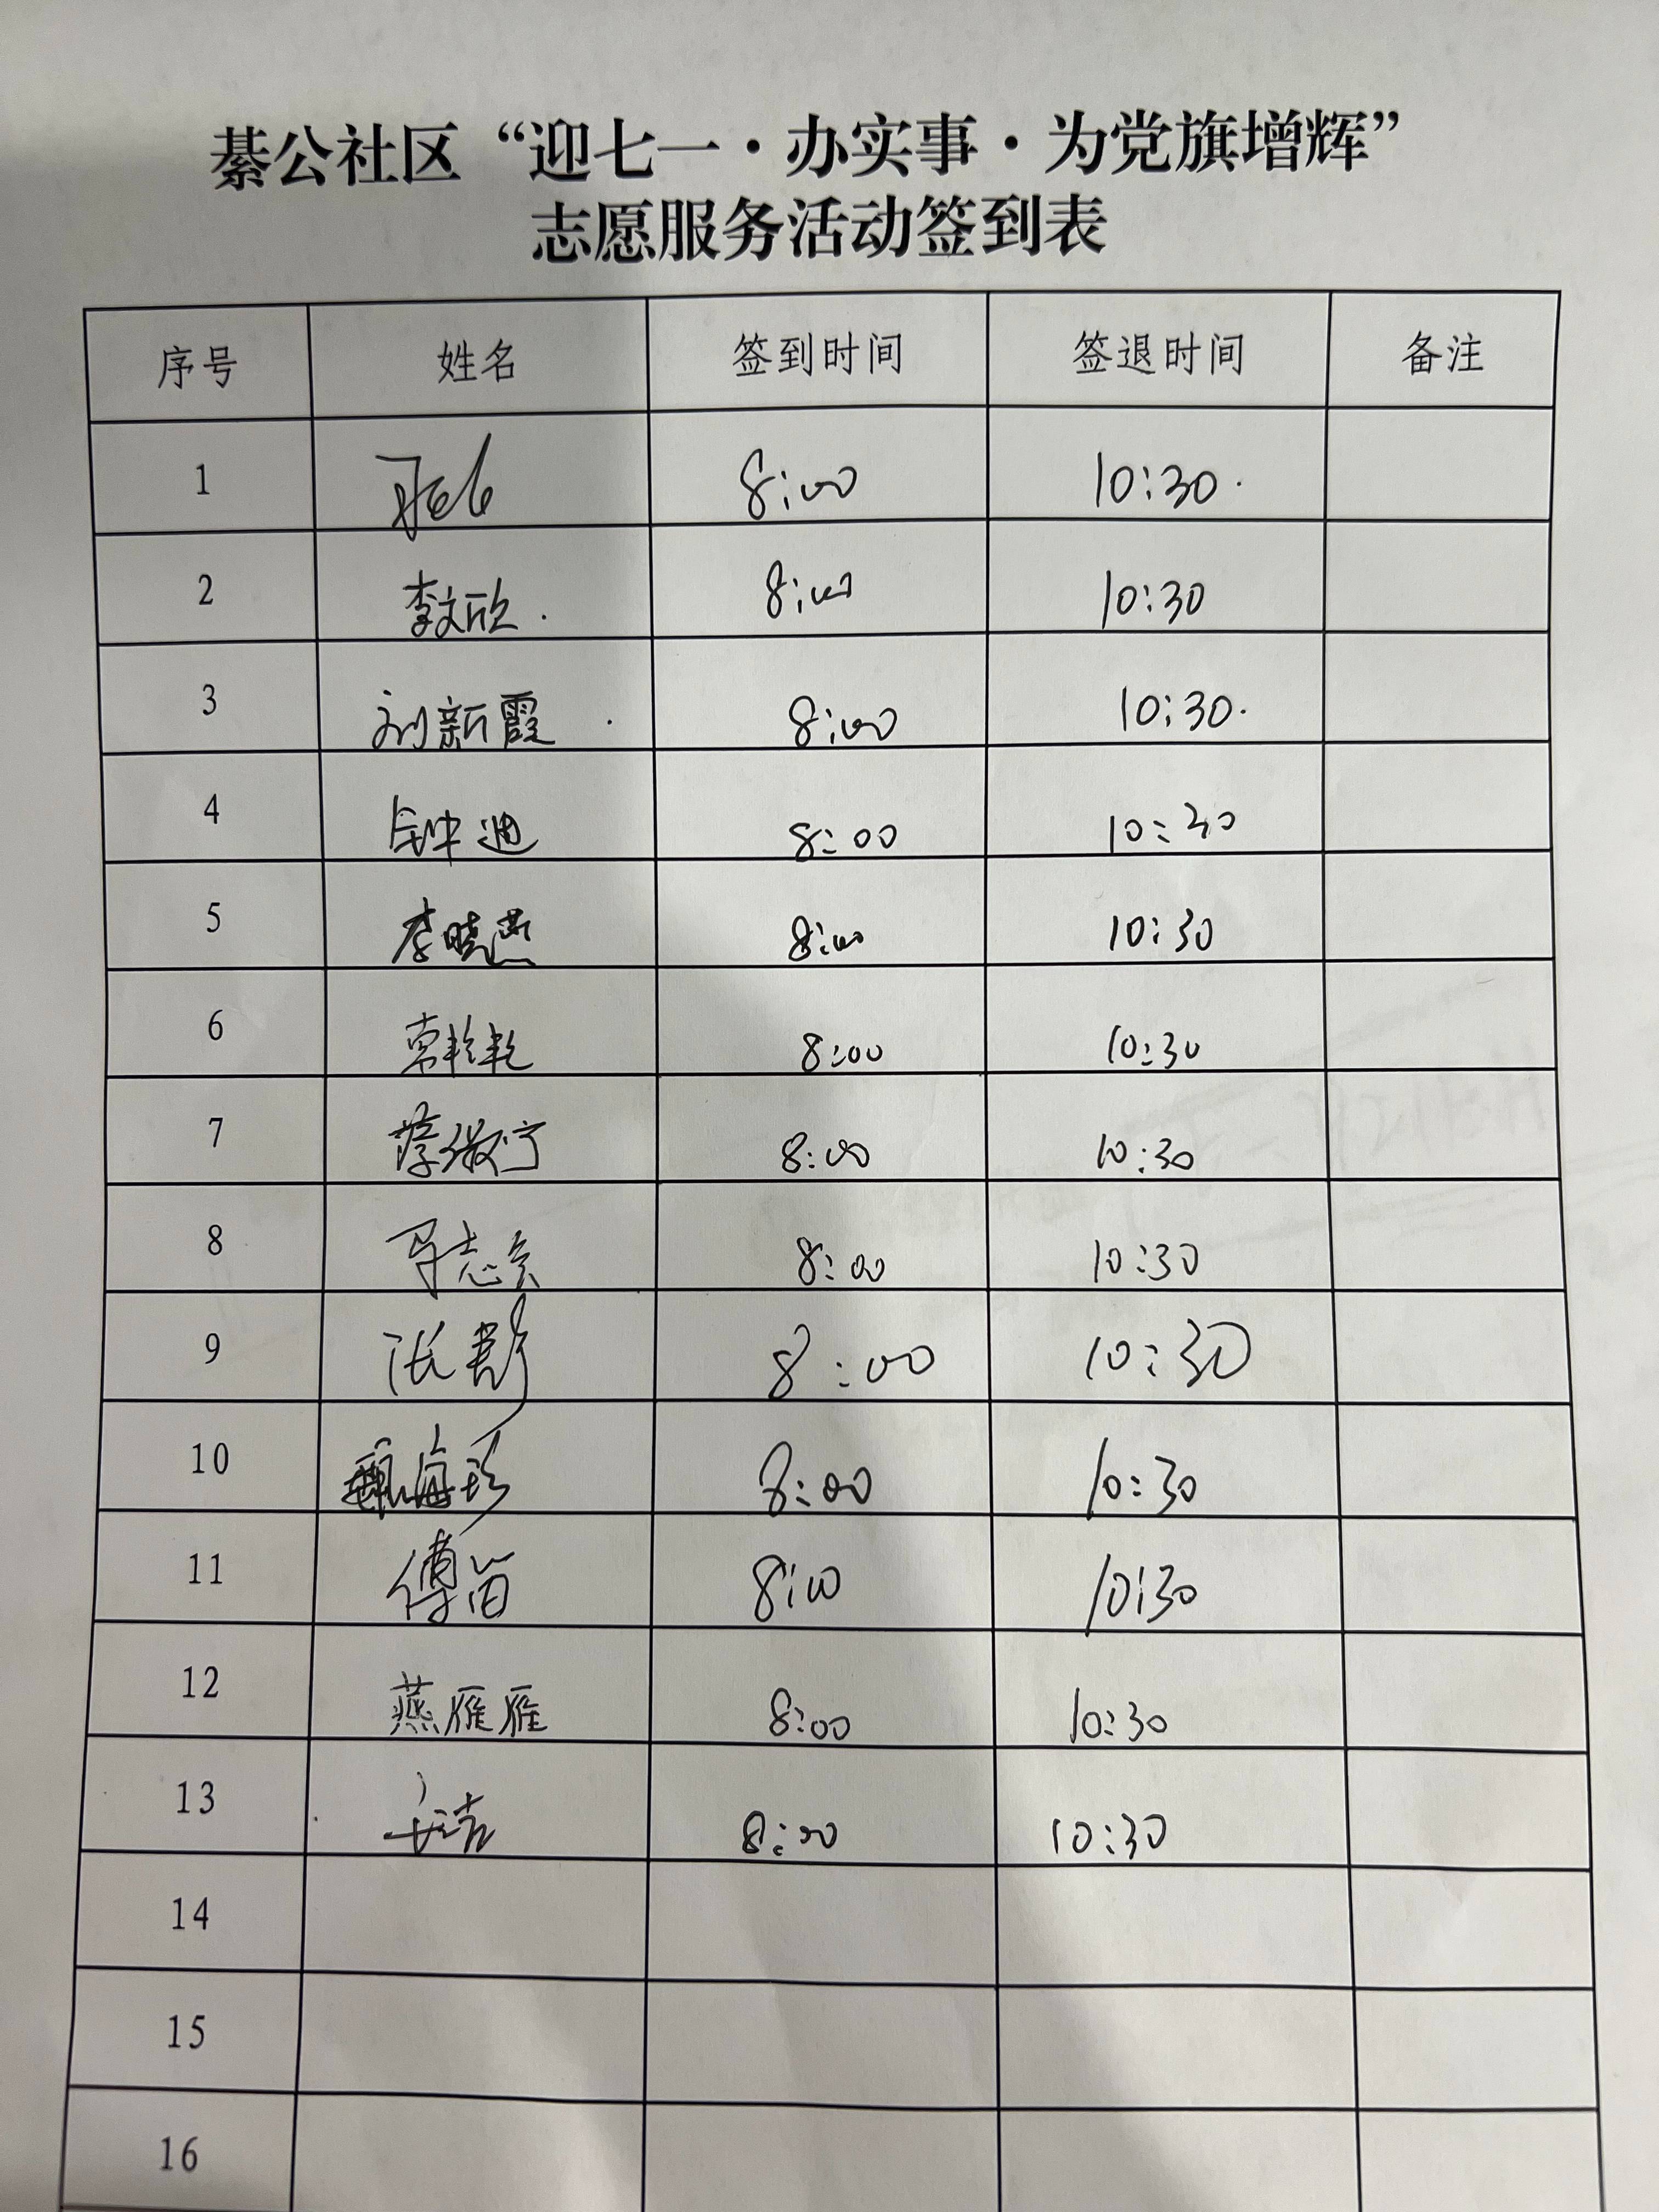 綦公社区“迎七一·办实事·为党旗增辉”
志愿服务活动签到表
序号 姓名 签到时间 签退时间 备注
1 8:00 10:30.
2 李文欣. 8:00 10:30
3 刘新霞. 8:00 10:30.
4 钟迪 8:00 10:30
5 李晓燕 8:00 10:30
6 8:00 10:30
7 8:00 10:30
8 8:00 10:30
9 8:00 10:30
10 甄海珍 8:00 10:30
11 傅笛 8:00 10:30
12 燕雁雁 8:00 10:30
13 8:00 10:30
14
15
16